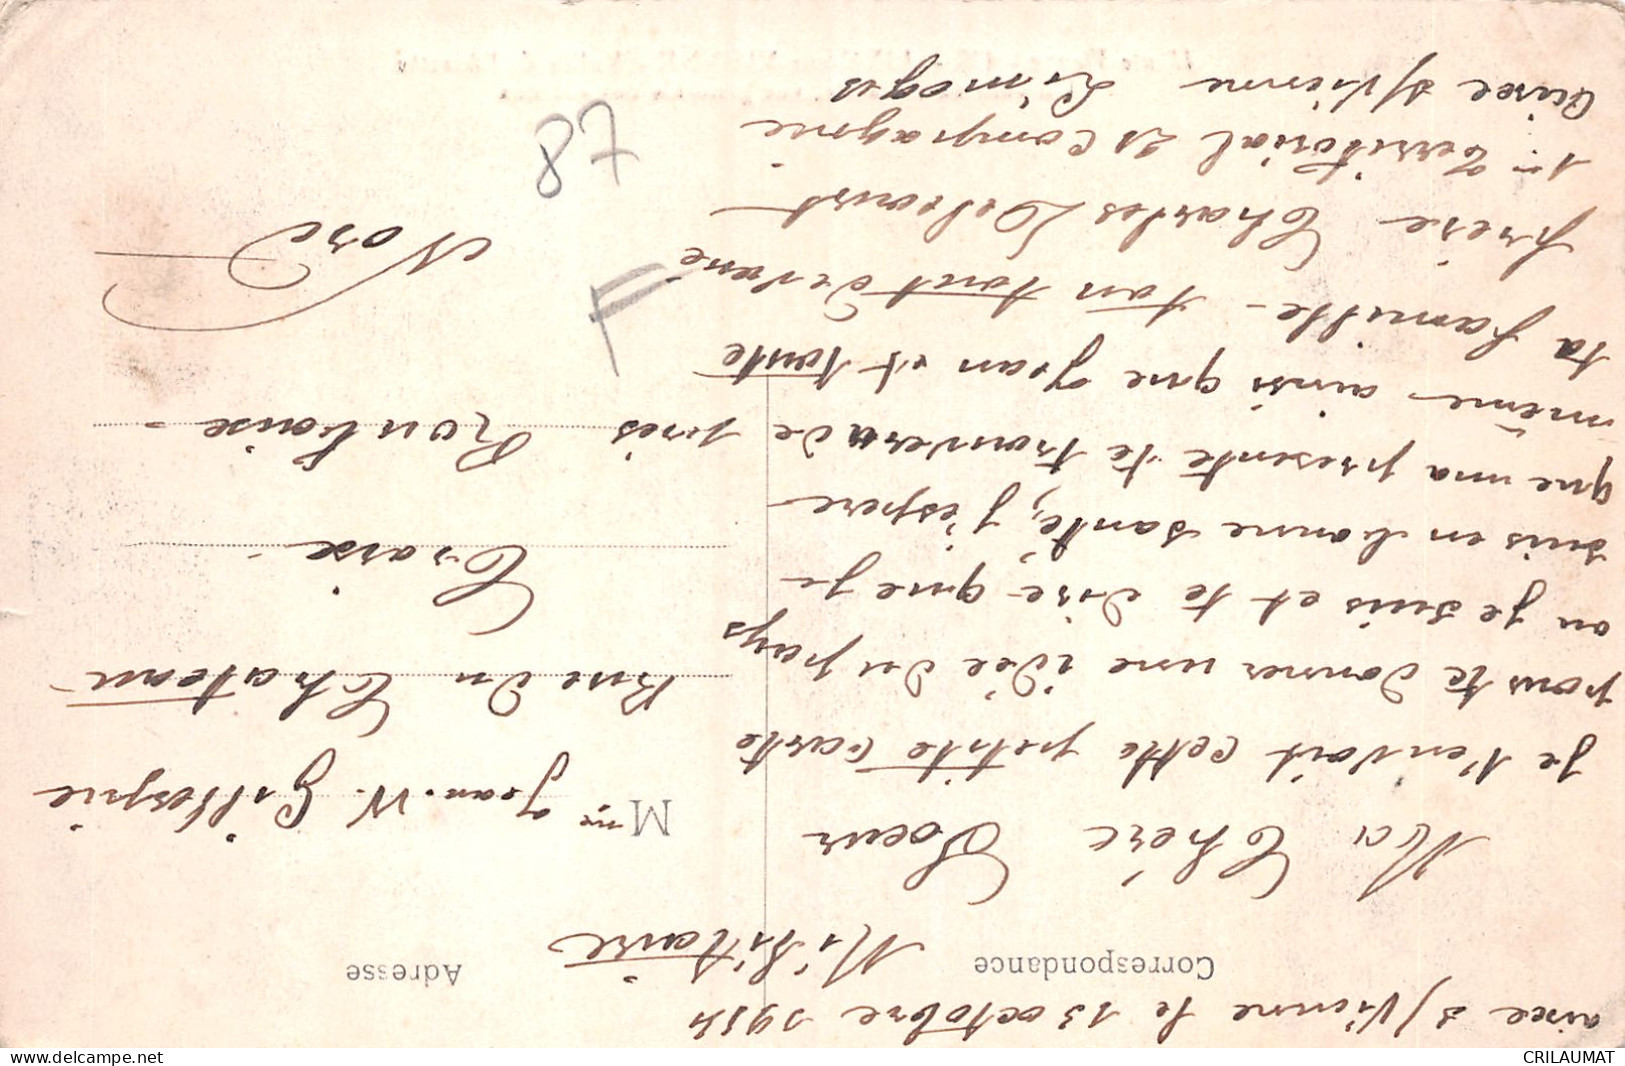 aixe s/Vienne le 13 octobre 1914
Correspondance
Militaire
Ma Chère Soeur
Je t'envoit cette petite Carte
pour te donner une idée du pays
ou je suis et te dire que je
suis en bonne santé, j'espere
que ma presente te trouvera de
même ainsi que Jean et toute
ta famille - ton tout devoué
frère Charles Delcourt
1er Territorial 21 Compagnie
Aixe s/Vienne Limoges
Adresse
Mme Jean. W. Gillespie
Rue du Chateau
Croix
près Roubaix
Nord
F
87
CRILAUMAT